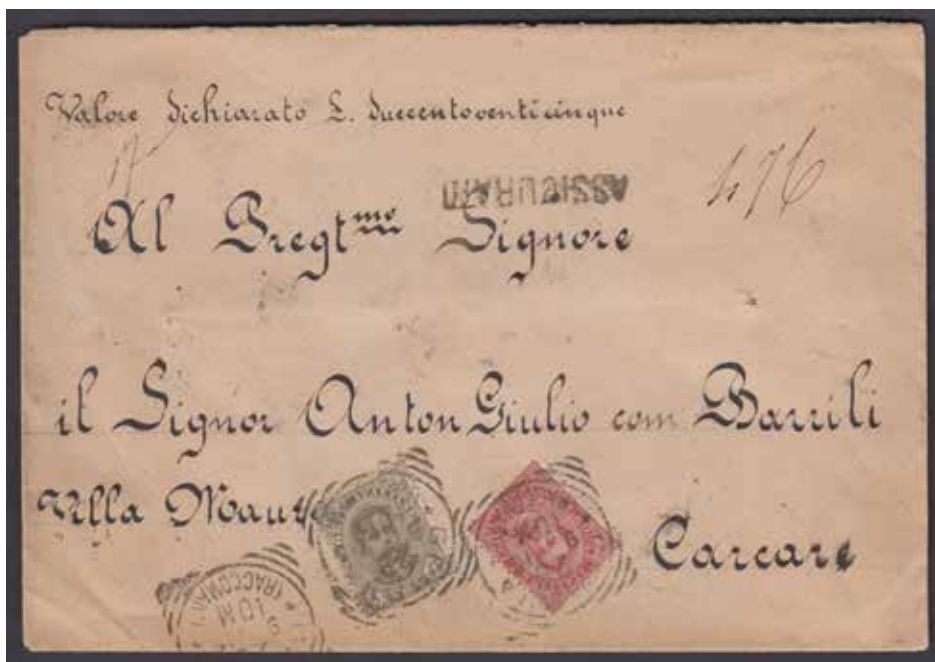 Valore dichiarato L. duecentoventicinque
ASSICURATO
476
Al Pregt.mo Signore
il Signor Anton Giulio com Barrili
Villa Maura
Carcare
(RACCOMAN
10 M
9